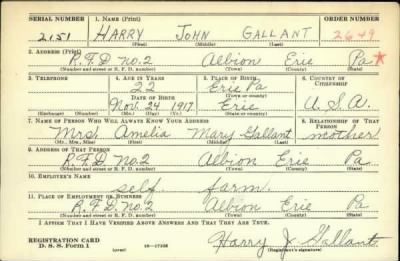 SERIAL NUMBER 1. NAME (Print) ORDER NUMBER
2151 HARRY JOHN GALLANT 2649
(First) (Middle) (Last)
2. ADDRESS (Print)
R.F.D. No. 2 Albion Erie Pa *
(Number and street or R. F. D. number) (Town) (County) (State)
3. TELEPHONE 4. AGE IN YEARS 5. PLACE OF BIRTH 6. COUNTRY OF CITIZENSHIP
22 Erie Pa
DATE OF BIRTH (Town or county)
Nov. 24 1917 Erie U.S.A.
(Exchange) (Number) (Mo.) (Day) (Yr.) (State or country)
7. NAME OF PERSON WHO WILL ALWAYS KNOW YOUR ADDRESS 8. RELATIONSHIP OF THAT PERSON
Mrs. Amelia Mary Gallant mother
(Mr., Mrs., Miss) (First) (Middle) (Last)
9. ADDRESS OF THAT PERSON
R.F.D. No. 2 Albion Erie Pa
(Number and street or R. F. D. number) (Town) (County) (State)
10. EMPLOYER'S NAME
self farm.
11. PLACE OF EMPLOYMENT OR BUSINESS
R.F.D. No. 2 Albion Erie Pa
(Number and street or R. F. D. number) (Town) (County) (State)
I AFFIRM THAT I HAVE VERIFIED ABOVE ANSWERS AND THAT THEY ARE TRUE.
REGISTRATION CARD
D. S. S. Form 1 (over) 16—17105 Harry J. Gallant
(Registrant's signature)